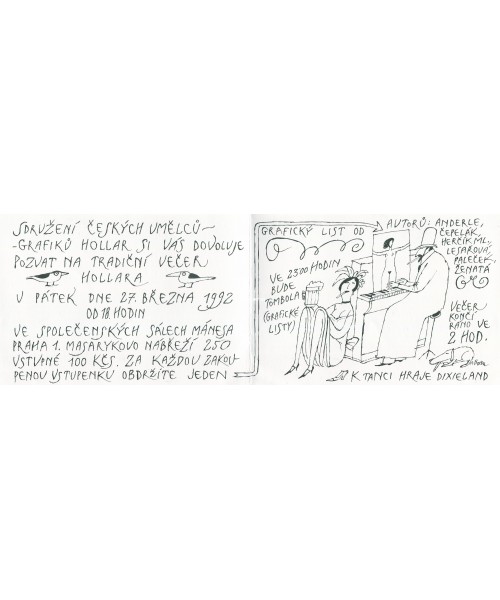 SDRUŽENÍ ČESKÝCH UMĚLCŮ-
-GRAFIKŮ HOLLAR SI VÁS DOVOLUJE
POZVAT NA TRADIČNÍ VEČER
HOLLARA
V PÁTEK DNE 27. BŘEZNA 1992
OD 18 HODIN
VE SPOLEČENSKÝCH SÁLECH MÁNESA
PRAHA 1. MASARYKOVO NÁBŘEŽÍ 250
VSTUPNÉ 100 KČS. ZA KAŽDOU ZAKOU-
PENOU VSTUPENKU OBDRŽÍTE JEDEN
GRAFICKÝ LIST OD
AUTORŮ: ANDERLE,
ČEPELÁK,
HERČÍK ML.,
LESAŘOVÁ,
PALEČEK,
ŽENATÁ
VE 23:00 HODIN
BUDE
TOMBOLA
(GRAFICKÉ
LISTY)
VEČER
KONČÍ
RÁNO VE
2 HOD.
K TANCI HRAJE DIXIELAND